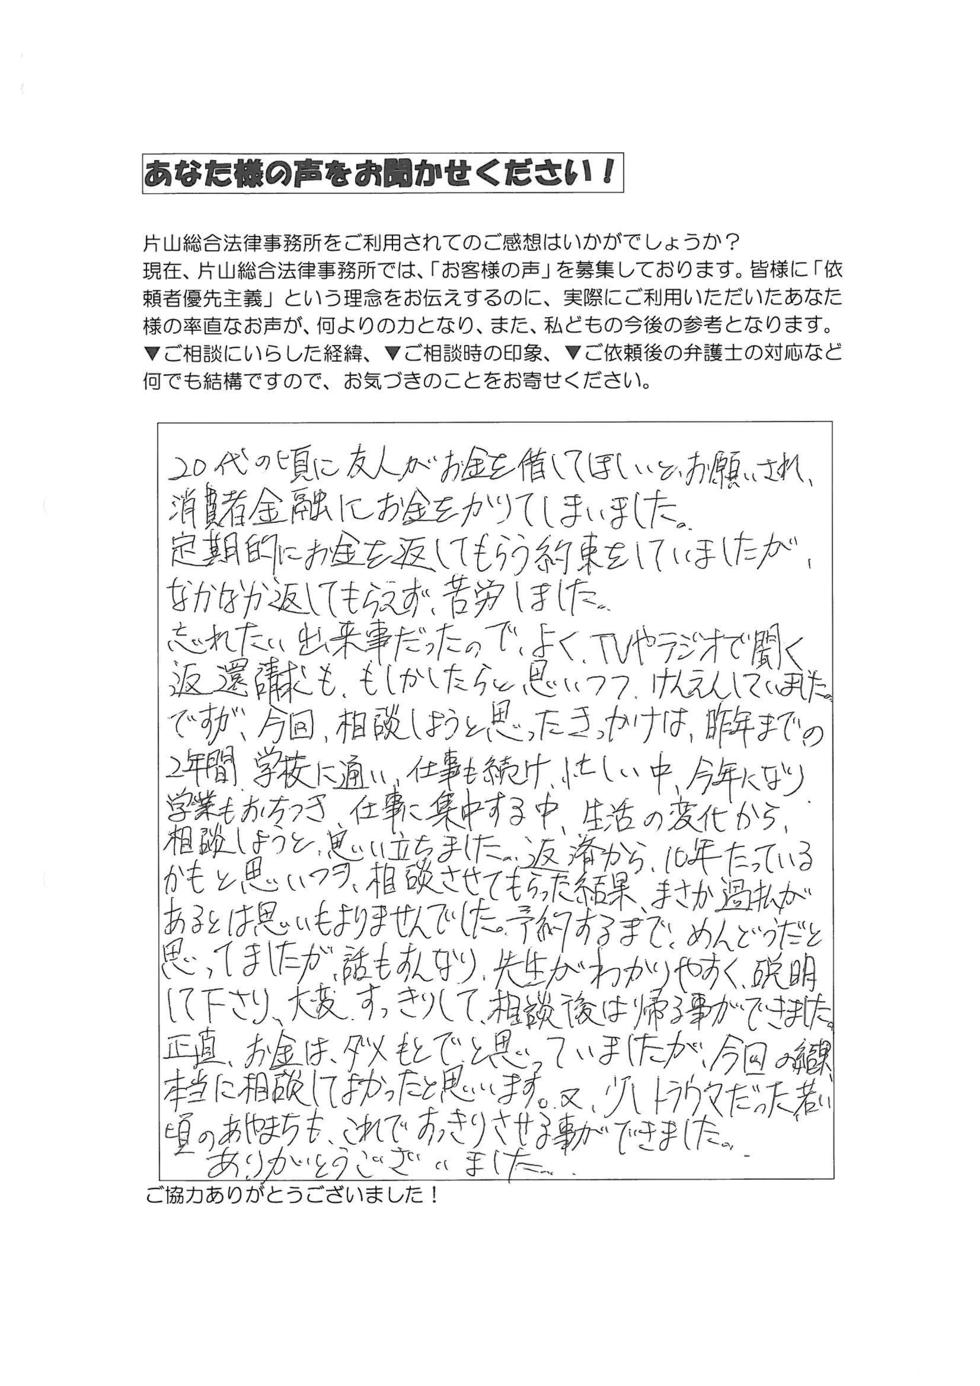 あなた様の声をお聞かせください！
片山総合法律事務所をご利用されてのご感想はいかがでしょうか？
現在、片山総合法律事務所では、「お客様の声」を募集しております。皆様に「依
頼者優先主義」という理念をお伝えするのに、実際にご利用いただいたあなた
様の率直なお声が、何よりの力となり、また、私どもの今後の参考となります。
▼ご相談にいらした経緯、▼ご相談時の印象、▼ご依頼後の弁護士の対応など
何でも結構ですので、お気づきのことをお寄せください。
20代の頃に友人がお金を借してほしいと、お願いされ、
消費者金融にお金をかりてしまいました。
定期的にお金を返してもらう約束をしていましたが、
なかなか返してもらえず、苦労しました。
忘れたい出来事だったので、よく、TVやラジオで聞く
返還請求も、もしかしたらと思いつつ、けんえんしていました。
ですが、今回、相談しようと思ったきっかけは、昨年までの
2年間、学校に通い、仕事も続け、忙しい中、今年になり
学業もおちつき、仕事に集中する中、生活の変化から、
相談しようと、思い立ちました。返済から、10年たっている
かもと思いつつ、相談させてもらった結果、まさか過払が
あるとは思いもよりませんでした。予約するまで、めんどうだと
思ってましたが、話もすんなり、先生がわかりやすく、説明
して下さり、大変、すっきりして、相談後は帰る事ができました。
正直、お金は、ダメもとでと思っていましたが、今回の結果、
本当に相談してよかったと思います。又、少しトラウマだった若い
頃のあやまちも、これですっきりさせる事ができました。
ありがとうございました。
ご協力ありがとうございました！